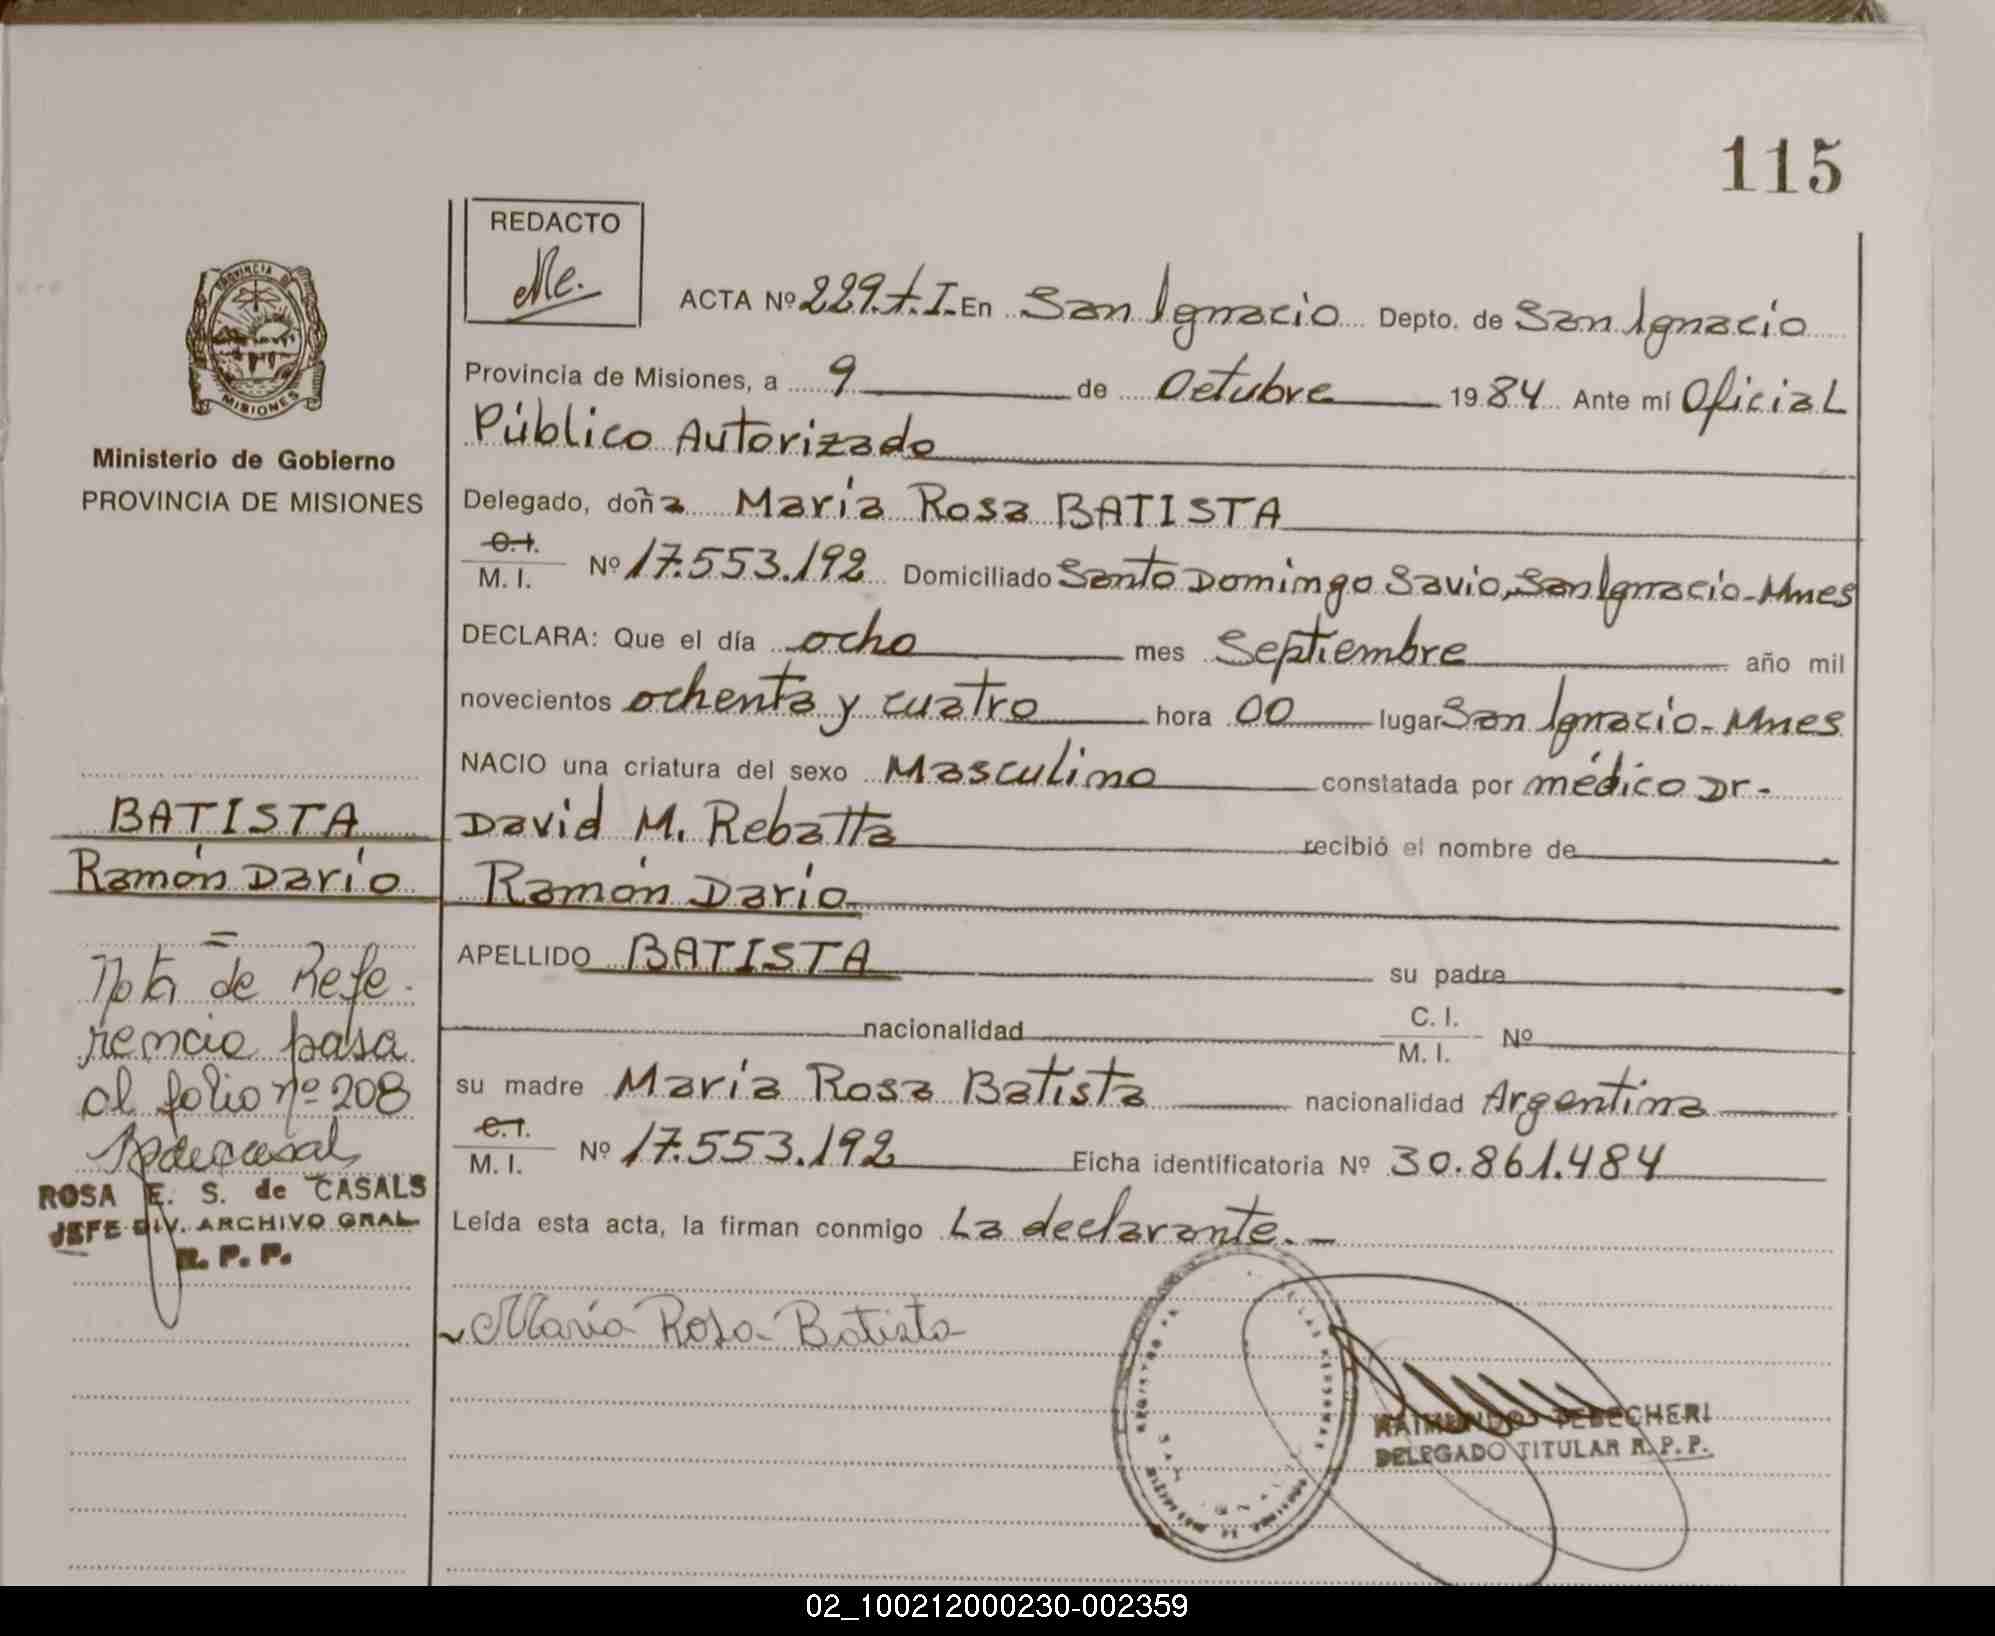 115
REDACTO
Me.
PROVINCIA DE
MISIONES
Ministerio de Gobierno
PROVINCIA DE MISIONES
ACTA Nº 229.t.I. En San Ignacio Depto. de San Ignacio
Provincia de Misiones, a 9 de Octubre 1984 Ante mí Oficial
Público Autorizado
Delegado, doña María Rosa BATISTA
C.I.
M. I. Nº 17.553.192 Domiciliado Santo Domingo Savio, San Ignacio-Mnes
DECLARA: Que el día ocho mes Septiembre año mil
novecientos ochenta y cuatro hora 00 lugar San Ignacio-Mnes
NACIO una criatura del sexo Masculino constatada por médico Dr-
David M. Rebatta recibió el nombre de
Ramón Darío
APELLIDO BATISTA su padre
nacionalidad C. I.
M. I. Nº
su madre María Rosa Batista nacionalidad Argentina
C.I.
M. I. Nº 17.553.192 Ficha identificatoria Nº 30.861.484
Leída esta acta, la firman conmigo La declarante.-
María Rosa Batista
RAIMUNDO TEBECHERI
DELEGADO TITULAR R.P.P.
BATISTA
Ramón Darío
=
Nota de Refe-
rencia pasa
al folio nº 208
ROSA E. S. de CASALS
JEFE DIV. ARCHIVO GRAL
R. P. P.
02_100212000230-002359